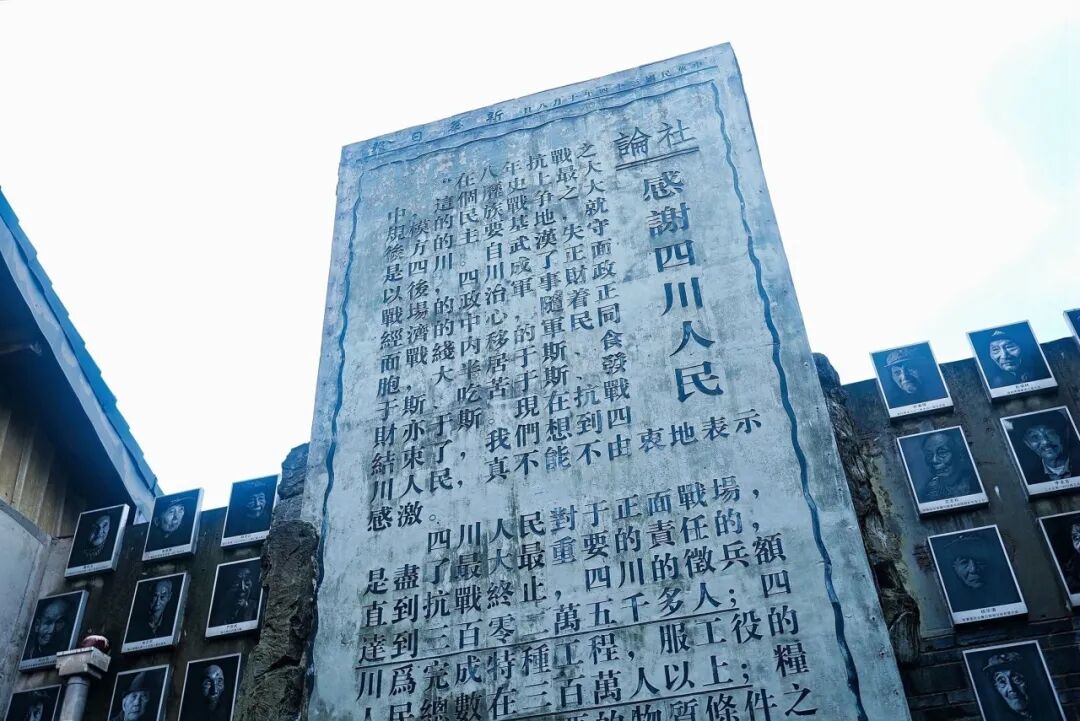 中華民國三十四年十月八日 新華日報
社論
感謝四川人民
“在八年抗戰之
中，這個歷史上最大
規模的民族戰爭之大
後方的主要基地，就
是四川。自武漢失守
以後，四川成了正面
戰場的政治軍事財政
經濟的中心，隨着正
面戰綫內移的軍民同
胞，大半居于斯，食
于斯，吃苦于斯，發
財亦于斯。現在抗戰
結束了，我們想到四
川人民，真不能不由衷地表示
感激。四川人民對于正面戰場，
是盡了最大最重要的責任的，
直到抗戰終止，四川的徵兵額
達到三百零二萬五千多人；四
川爲完成特種工程，服工役的
人民總數在三百萬人以上；糧
的物質條件之